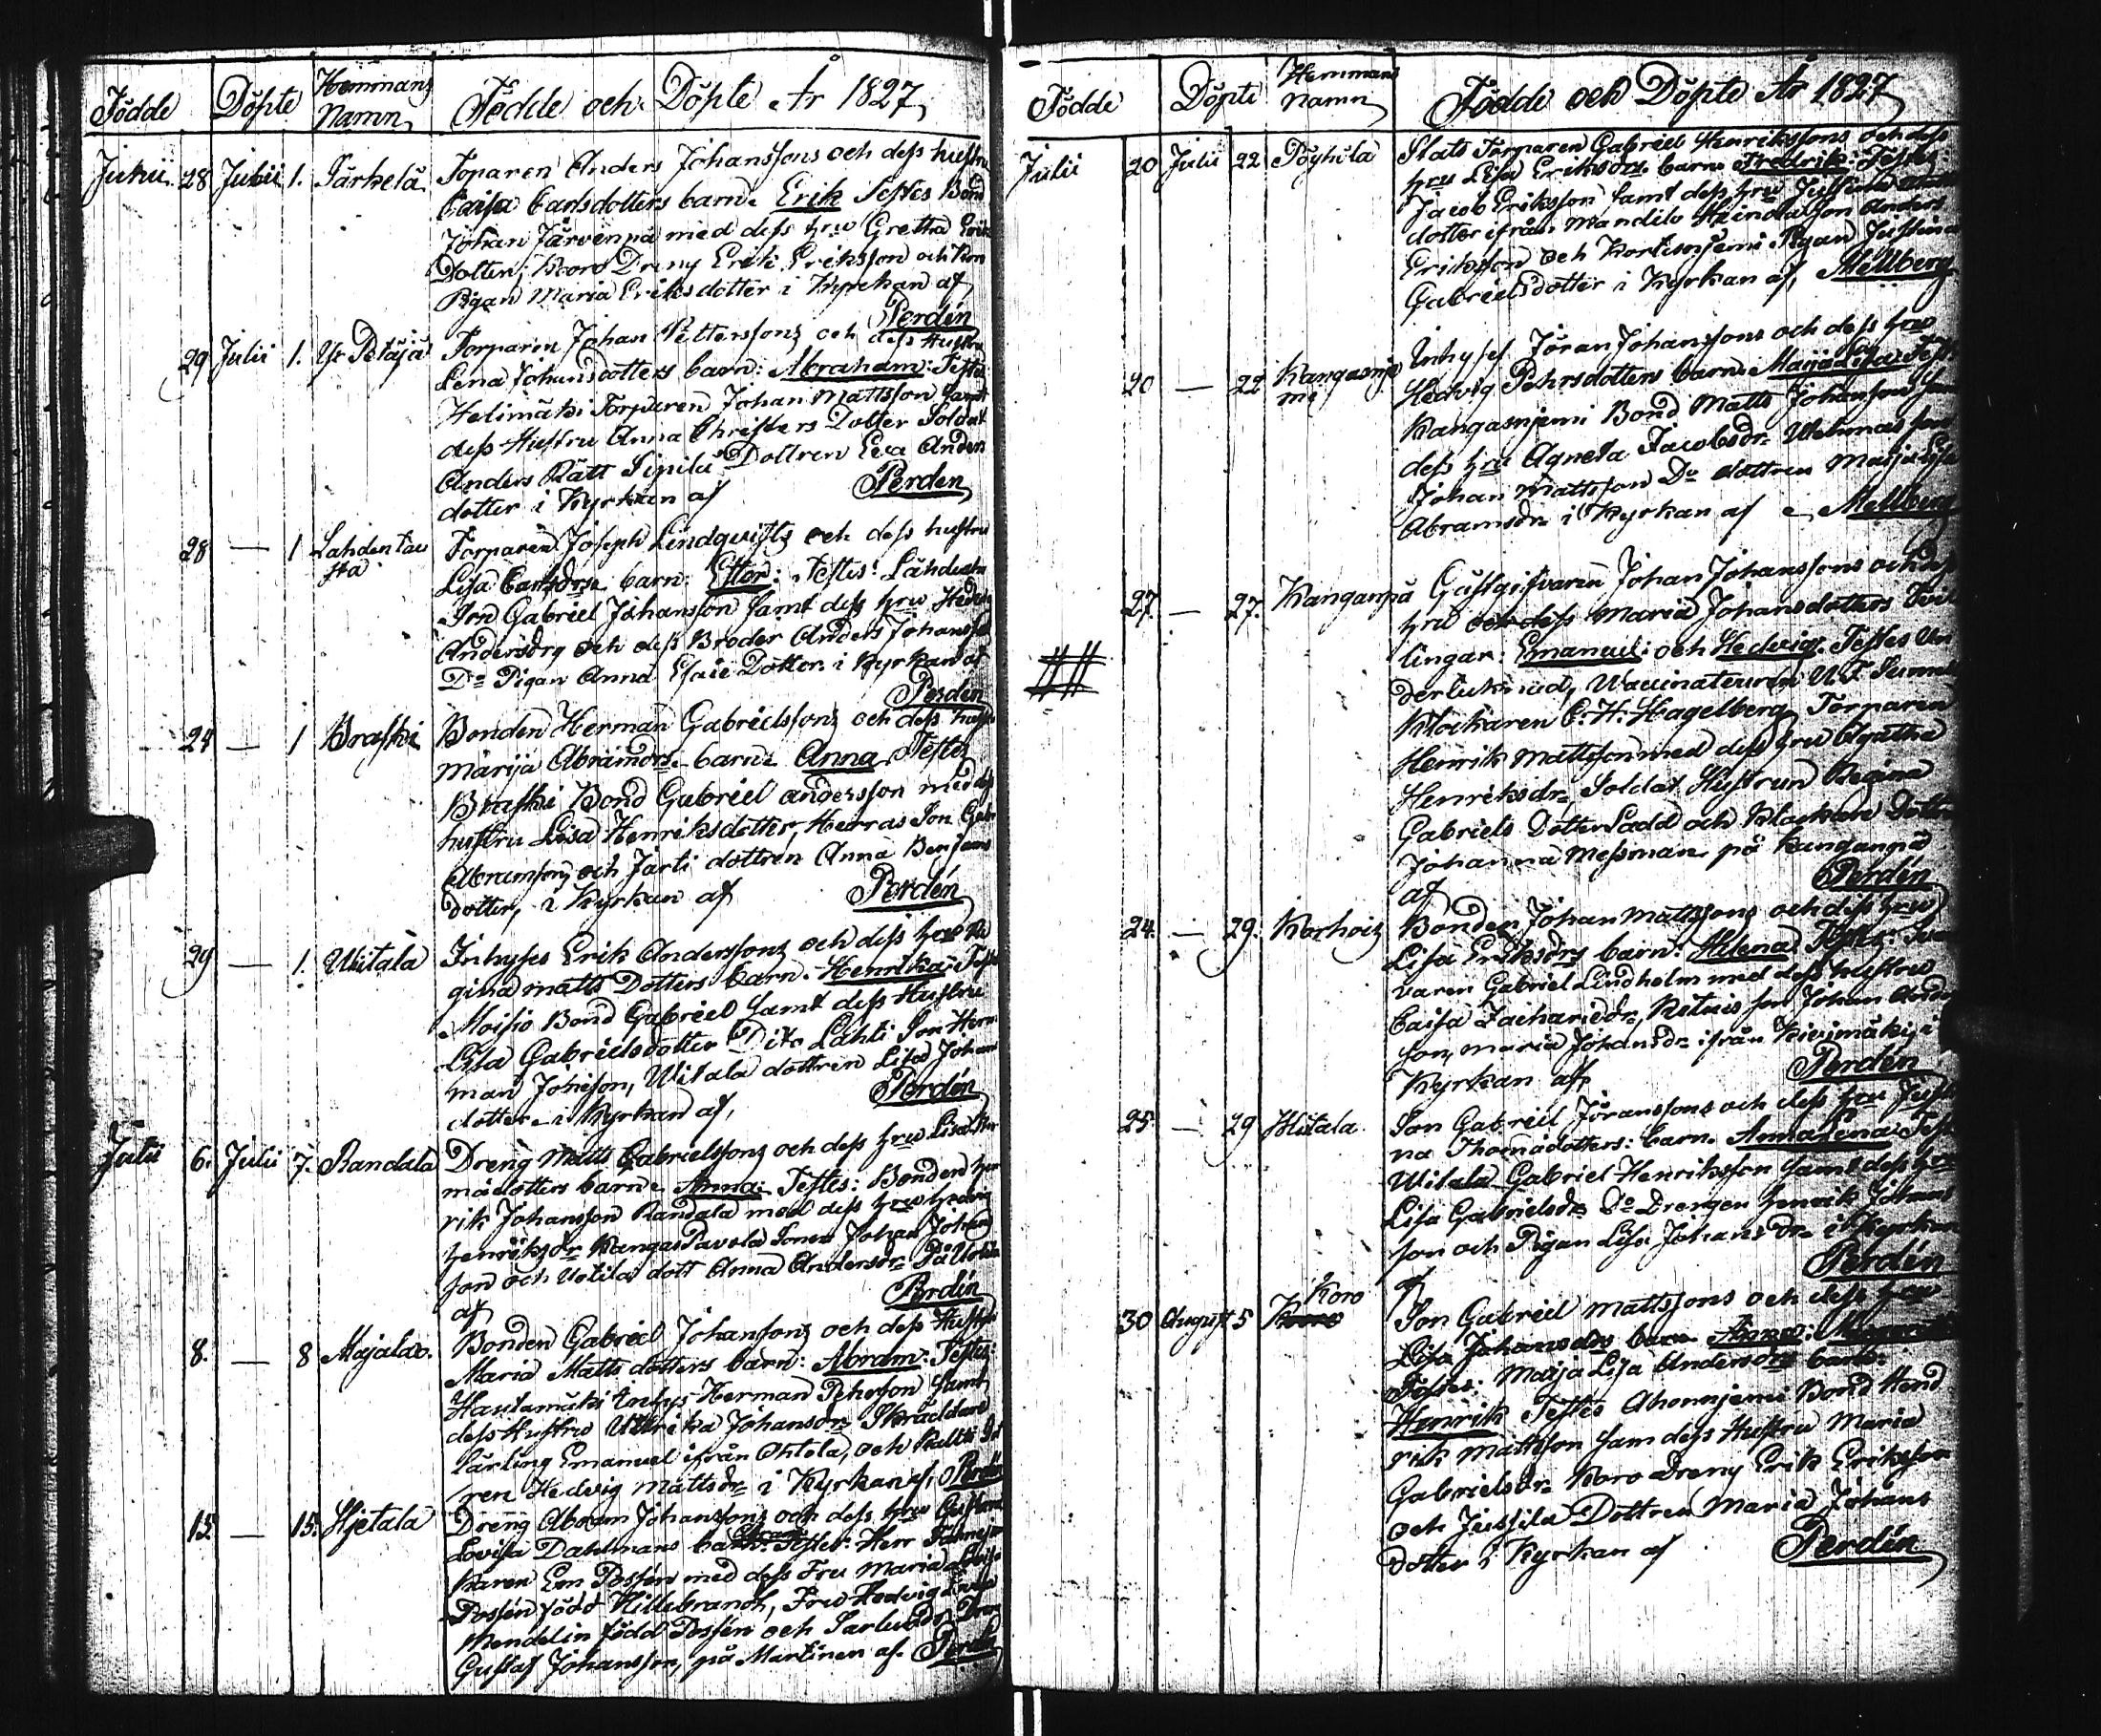 Födde Döpte Hemmans Namn Födde och Döpte År 1827
Junii 28 Julii 1. Särkelä Toparen Anders Johanssons och dess hustru
Caisa Carlsdotters barn. Erik Testes Bond
Johan Järvenpä med dess hru Gretha Eriks
Dotter; Koro Dreng Erik Eriksson och Koro
Pigan Maria Eriksdotter i Kyrkan af
Perdén
29 Julii 1. Yr Petäjä Torparen Johan Petterssons och dess Hustru
Lena Johansdotters barn: Abraham: Testes
Helimäki Torparen Johan Mattsson samt
dess Hustru Anna Christers Dotter Soldat
Anders Rätt Sipilä Dottren Eva Anders
dotter i Kyrkan af Perdén
28 — 1 Lahdentau
sta Torparen Joseph Lindqvists och dess hustru
Lisa Carlsdrs barn: Ester: Testes: Lähdentau
Son Gabriel Johansson samt dess hru Hedvig
Andersdrs och dess Broder Anders Johansson
Do Pigan Anna Esaiæ Dotter i Kyrkan af
Perdén
24 — 1 Braski Bonden Herman Gabrielssons och dess hustru
Marija Abramdrs barn: Anna Testes
Braski Bond Gabriel andersson med dess
hustru Lisa Henriksdotter, Herras Son Gabr
Abramson, och Jarti dottren Anna Benjams
dotter, i Kyrkan af Perdén
29 — 1. Uitala Inhyses Erik Anderssons och dess hru Re
gina Matts Dotters barn. Henrika: Testes
Moisio Bond Gabriel samt dess Hustru
Lisa Gabrielsdotter Dito Lahti Son Her
man Johnson, Uitala dottren Lisa Johans
dotter i Kyrkan af, Perdén
Julii 6. Julii 7. Randala Dreng Matts Gabrielssons och dess hru Lisa Tho
mädotters barn. Anna: Testes: Bonden Hen
rik Johansson Randala med dess hru Hedvig
Henriksdr Kangas Pavola Sonen Johan Johans
son och Uotila dott Anna Andersdr På Uotila
af Perdén
8. — 8 Majalax. Bonden Gabriel Johanssons och dess Hustru
Maria Matts dotters barn: Abram: Testes:
Hautamäki Inhys Herman Pehrsson samt
dess Hustru Ullrika Johansdr Skräddare
lärling Emanuel ifrån Ohtola, och Raltti Dot
ren Hedvig Mattsdr i Kyrkan af, Perdén
15 — 15. Hjetala Dreng Abram Johanssons och dess hru Gustava
Lovisa Dahlmans barn: Testes: Herr Fänne
karen Em Possén med dess Fru Maria Lovisa
Possén född Hillebrandh, Fru Hedvig Lovisa
Mendelin född Possén och Sarluoto Dren
Gustaf Johansson, på Martinen af. Perdén
Födde Döpte Hemmans Namn Födde och Döpte År 1827
Julii 20 Julii 22 Pöyhilä Stats Torparen Gabriel Henrikssons och dess
hru Lisa Eriksdrs. barn Fredrik: Testes
Jacob Eriksson samt dess hru Justina
dotter ifrån Mandilo Anders
Eriksson och Korkeonjemi Pigan Justina
Gabrielsdotter i Kyrkan af, Mellberg
20 — 22 Kangasnje
mi Inhyses Jöran Johanssons och dess hru
Hedvig Pehrsdotters barn Maija Lisa Testes
Kangasnjemi Bond Matts Johansson samt
dess hru Agneta Jacobsdr Uschmas son
Johan Mattsson Do dottren Marja Lisa
Abramsdr i Kyrkan af Mellberg
27. — 27. Kanganpä Gästgifvaren Johan Johanssons och dess
hru och dess Maria Johansdotters tvil
lingar: Emanuel: och Hedvig. Testes Un
derlukmied, Wacinateuren
Klockaren C. H. Hagelberg Torparen
Henrik Mattsson med dess hru Agatha
Henriksdr Soldat Hustrun Regina
Gabriels Dotter Ladd och Klockare Dottren
Johanna Messman på Kanganpä
af Perdén
24. — 29. Korhois Bonden Johan Mattssons och dess hru
Lisa Eriksdrs barn: Helena Testes:
varen Gabriel Lindholm med dess hustru
Caisa Zachariedr, Retuis son Johan Anders
son, Maria Johansdr ifrån Kivimäki, i
Kyrkan af Perdén
25. — 29 Hitala Son Gabriel Jöranssons och dess hru Justi
na Thomädotters: barn. Anna Lena Testes
Uitala Gabriel Henriksson samt dess hru
Lisa Gabrielsdr Do Drengen Henrik Johans
son och Pigan Lisa Johans Dr i Kyrkan
af Perdén
30 August 5 Koro Koro Son Gabriel Mattssons och dess hru
Lisa Johansdrs barn Anna:
Testes: Maija Lisa Andersdrs barn.
Henrik Testes Ahonnjemi Bond Hend
rik Mattsson sam dess Hustru Maria
Gabrielsdr Koro Dreng Erik Eriksson
och Jussila Dottren Maria Johans
dotter i Kyrkan af Perdén